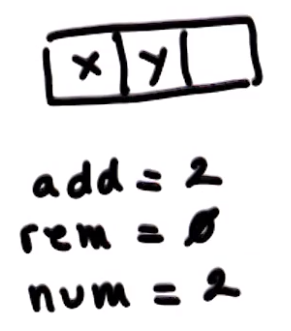 x y
add = 2
rem = 0
num = 2